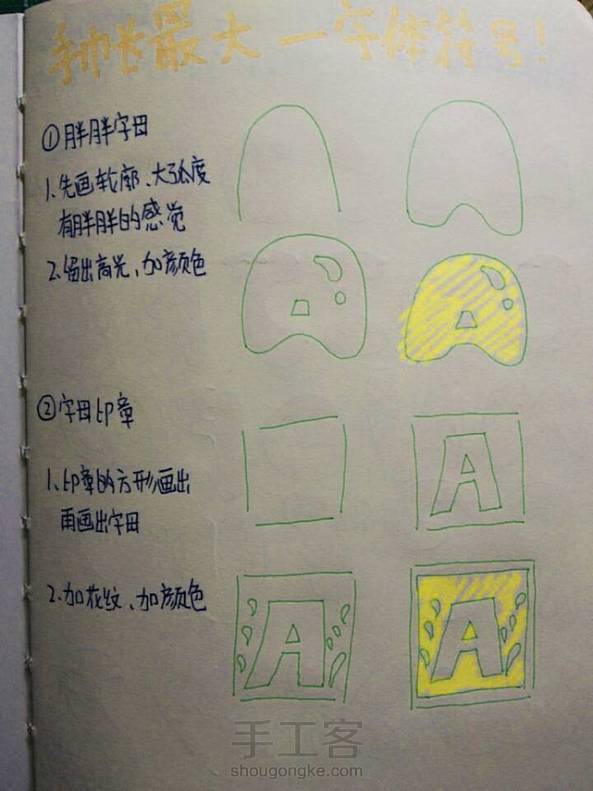 手帐最大一字体符号!
①胖胖字母
1.先画轮廓、大弧度
有胖胖的感觉
2.留出高光、加颜色
②字母印章
1.印章的方形画出
再画出字母
A
2.加花纹、加颜色
A A
手工客
shougongke.com